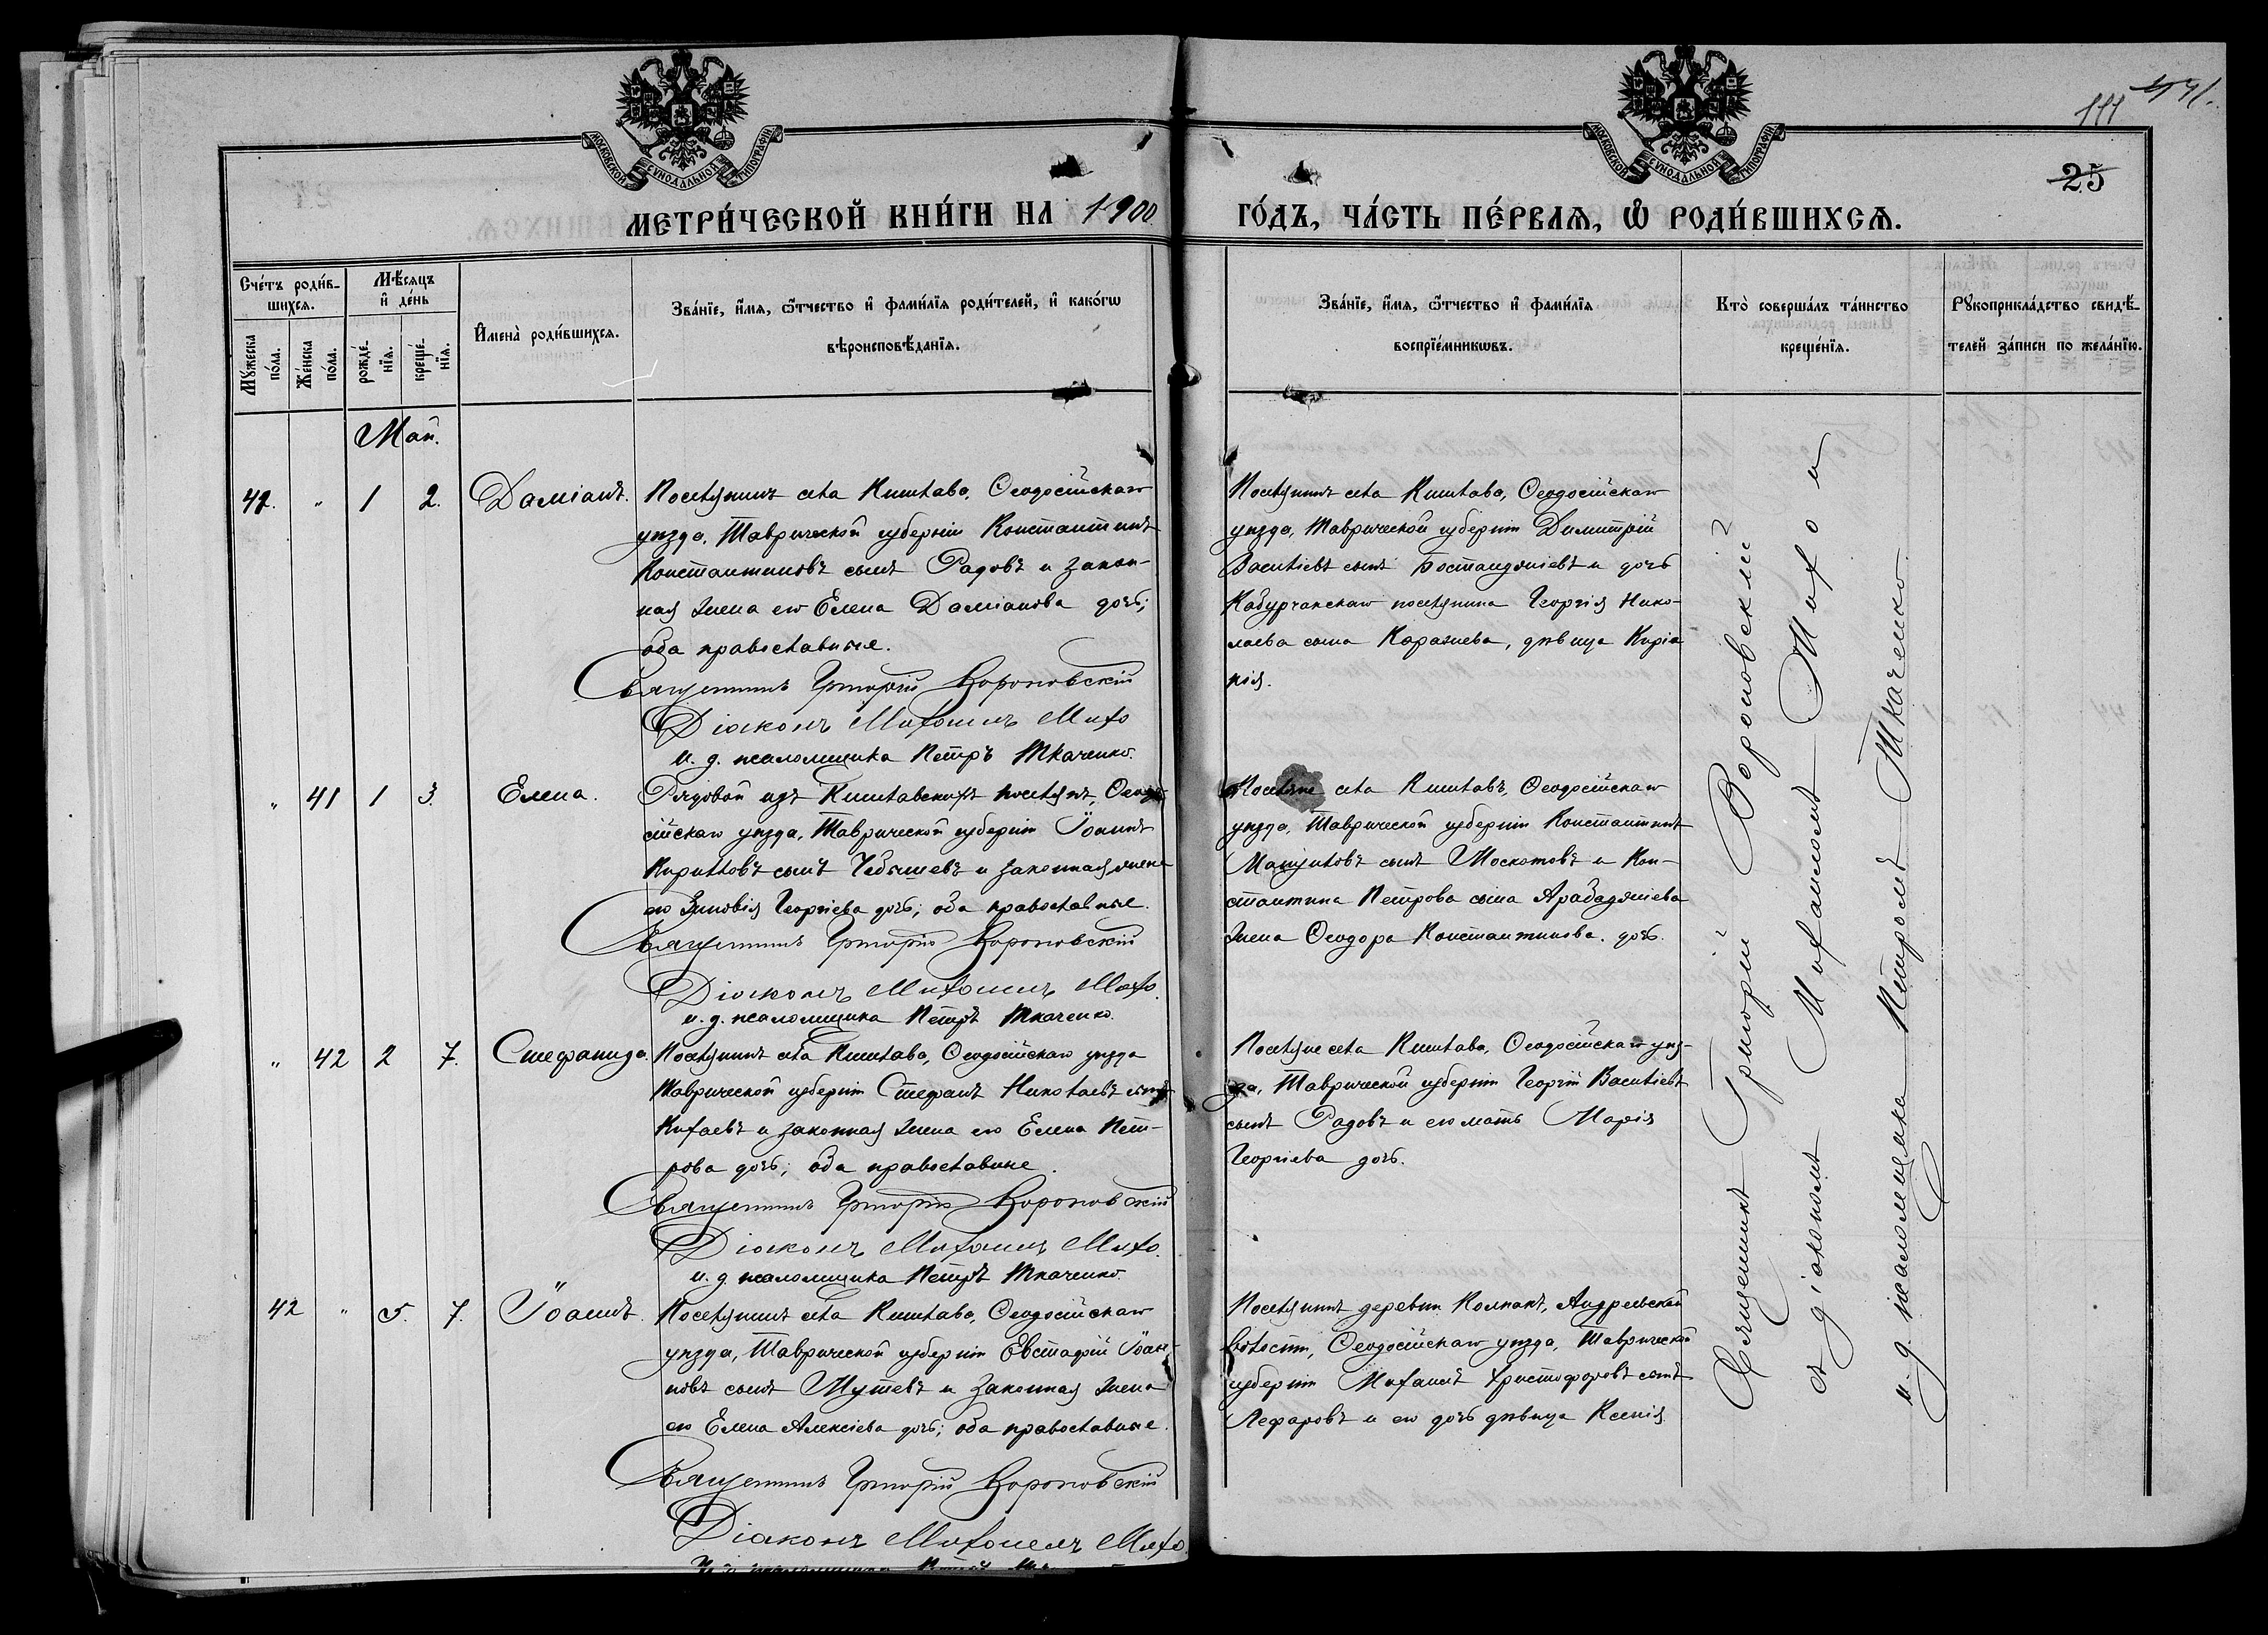 МОСКОВСКОЙ СУНОДАЛЬНОЙ ТИПОГРАФІИ
МОСКОВСКОЙ СУНОДАЛЬНОЙ ТИПОГРАФІИ
111
25
МЕТРИ́ЧЕСКОЙ КНИ́ГИ НА 1900
ГО́ДЪ, ЧА́СТЬ ПЕ́РВАѦ, Ѡ РОДИ́ВШИХСѦ.
Сче́тъ роди́в-
шихсѧ.
Мѣ́сѧцъ
и҆ де́нь
Мꙋ́жеска
по́ла.
Же́нска
по́ла.
рожде́-
нїѧ.
креще́-
нїѧ.
И҆мена̀ роди́вшихсѧ.
Зва́нїе, и҆́мѧ, ѻ҆́тчество и҆ фами́лїѧ роди́телей, и҆ како́гѡ
вѣроисповѣ́данїѧ.
Зва́нїе, и҆́мѧ, ѻ҆́тчество и҆ фами́лїѧ
воспрїе́мникѡвъ.
Кто̀ соверша́лъ та́инство
креще́нїѧ.
Рꙋкоприкла́дство свидѣ́-
телей за́писи по жела́нїю.
Май.
41. " 1 2. Даміанъ.
Поселянинъ села Кишлава, Ѳеодосійскаго
уѣзда, Таврической губерніи Константинъ
Константиновъ сынъ Радовъ и закон-
ная жена его Елена Даміанова дочь;
оба православные.
Священникъ Григорій Вороновскій
Діаконъ Михаилъ Махо
и. д. псаломщика Петръ Ткаченко.
Поселянинъ села Кишлава, Ѳеодосійскаго
уѣзда, Таврической губерніи Димитрій
Васильевъ сынъ Бостанджіевъ и дочь
Кабурчакскаго поселянина Георгія Нико-
лаева сына Каразиева, дѣвица Киріа
кія.
" 41 1 3. Елена.
Рядовой изъ Кишлавскихъ поселянъ, Ѳеодо-
сійскаго уѣзда, Таврической губерніи Іоаннъ
Кирилловъ сынъ Чебышевъ и законная жена
его Зиновія Георгіева дочь; оба православные.
Священникъ Григорій Вороновскій
Діаконъ Михаилъ Махо.
и. д. псаломщика Петръ Ткаченко.
Поселяне села Кишлавъ, Ѳеодосійскаго
уѣзда, Таврической губерніи Константинъ
сынъ Москотовъ и Кон-
стантина Петрова сына Арабаджіева
жена Ѳеодора Константинова дочь.
" 42 2 7. Стефанида.
Поселянинъ села Кишлава, Ѳеодосійскаго уѣзда
Таврической губерніи Стефанъ Николаевъ сынъ
Кифаевъ и законная жена его Елена Пет-
рова дочь; оба православные.
Священникъ Григорій Вороновскій
Діаконъ Михаилъ Махо.
и. д. псаломщика Петръ Ткаченко.
Поселяне села Кишлава, Ѳеодосійскаго уѣз-
да, Таврической губерніи Георгій Васильевъ
сынъ Радовъ и его мать Марія
Георгіева дочь.
42 " 5. 7. Іоаннъ.
Поселянинъ села Кишлава, Ѳеодосійскаго
уѣзда, Таврической губерніи Евстафій Іоан-
новъ сынъ Мутевъ и законная жена
его Елена Алексіева дочь; оба православные.
Священникъ Григорій Вороновскій
Діаконъ Михаилъ Махо.
Поселянинъ деревни Колпакъ, Андреевской
волости, Ѳеодосійскаго уѣзда, Таврической
губерніи Михаилъ Христофоровъ сынъ
Лефаровъ и его дочь дѣвица Ксенія.
Священникъ Григорій Вороновскій
съ діакономъ Михаиломъ Махо и
и. д. псаломщика Петромъ Ткаченко